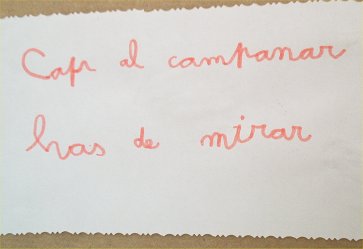 Cap al campanar
has de mirar